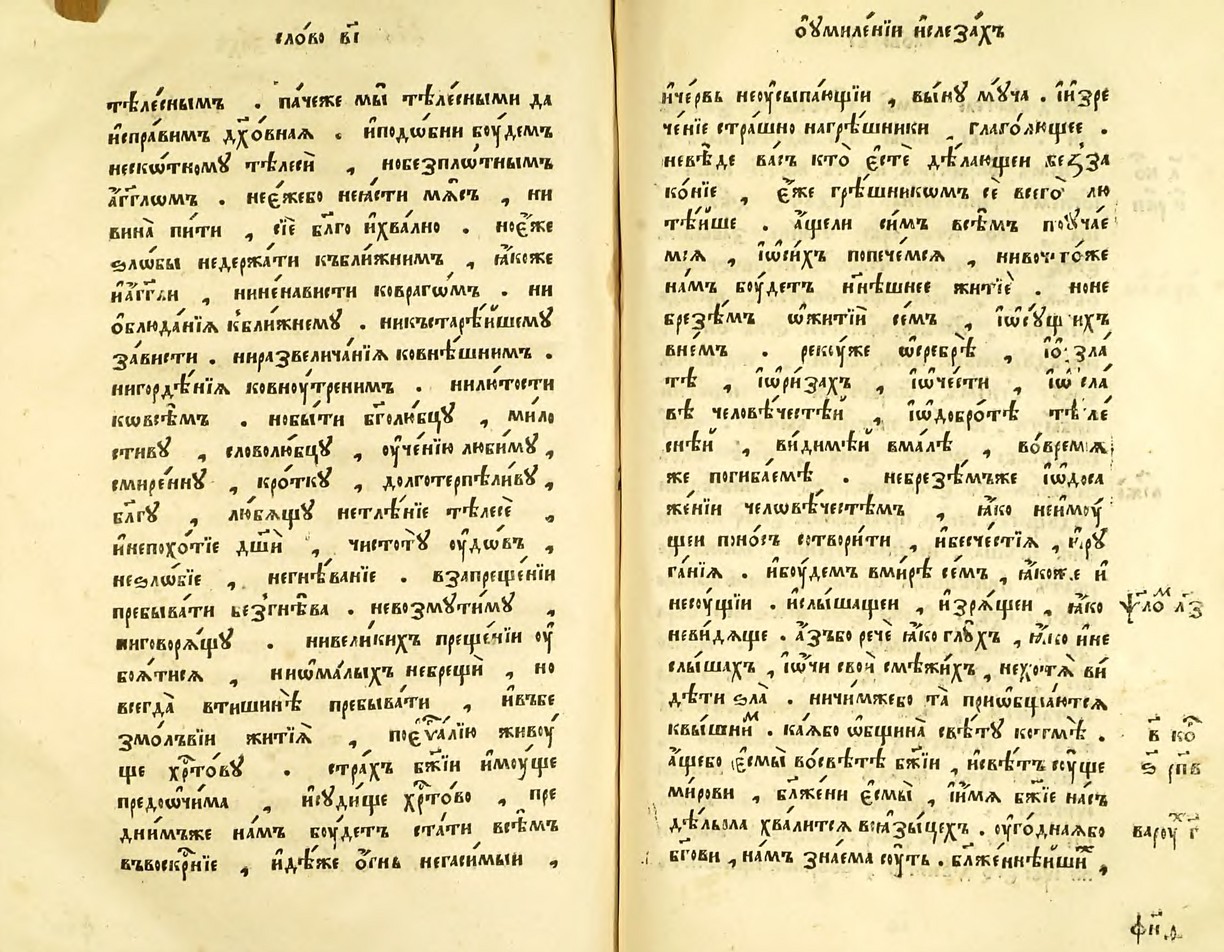 сло́во в҃і
тѣле́снымъ . па́чеже мы̀ тѣле́сными да
и҆спра́вимъ дх҃о́вная . и҆подо́бни бꙋ́демъ
нескѡ́тномꙋ тѣлесѝ , нобезпло́тнымъ
а҆́гг҃лѡмъ . нее҆́жебо неꙗ҆́сти мѧ́съ , ни
вина̀ пи́ти , сїѐ бл҃го и҆хва́лно . ное҆́же
ѕло́бы недержа́ти къбли́жнимъ , ꙗ҆́коже
и҆а҆́гг҃ли , нине́нависти ковраго́мъ . ни
о҆блюда́нїѧ кбли́жнемꙋ . никъстарѣ́йшемꙋ
за́висти . ниразвелича́нїѧ ковнѣ́шнимъ .
нигордѣ́нїѧ ковноу́тренимъ . нилю́тости
ковсѣ́мъ . нобы́ти бг҃олю́бцꙋ , ми́ло
стивꙋ , словолю́бцꙋ , оу҆че́нїю люби́мꙋ ,
смире́ннꙋ , кро́ткꙋ , долготерпѣли́вꙋ ,
бл҃гꙋ , лю́бѧщꙋ нетлѣ́нїе тѣлесѐ ,
и҆непохо́тїе дш҃и , чистотꙋ̀ оу҆до́въ ,
неѕло́бїе , негнѣ́ванїе . взапреще́нїи
пребыва́ти безгнѣ́ва . невозмꙋти́мꙋ ,
ниговорѧ́щꙋ . нивели́кихъ преще́нїи оу҆
боѧ́тисѧ , ниѡ҆ма́лыхъ небрещѝ , но
всегда̀ втишинѣ̀ пребыва́ти , и҆въбе
змо́лъвїи житїѧ̀ , пое҆ѵⷢ҇а́лїю живоу́
ще хрⷭ҇то́вꙋ . стра́хъ бж҃їи и҆моу́ще
предоѡ҆чи́ма , и҆сꙋди́ще хрⷭ҇то́во , пре
дни́мъже на́мъ бꙋ́детъ ста́ти всѣ́мъ
въвоскрⷭ҇нїе , и҆дѣ́же о҆́гнь негаси́мыи ,
оу҆миле́нїи и҆слеза́хъ
и҆че́рвь неоусыпа́ющїи , вы́нꙋ мꙋ́ча . и҆и҆зре
че́нїе стра́шно нагрѣ́шники , глаго́лющее .
невѣ́де ва́съ кто̀ є҆стѐ дѣ́лающеи беззза
ко́нїе , є҆́же грѣ́шникѡмъ сѐ всего̀ лю
тѣ́йше . а҆́щели си́мъ всѣ́мъ поꙋча́е
мсѧ , и҆ѡ҆си́хъ попече́мсѧ , нивочто́же
на́мъ бꙋ́детъ нн҃ѣшнее житїѐ . ноне
брезѣ́мъ ѡ҆житїѝ се́мъ , и҆ѡ҆сꙋ́щихъ
вне́мъ . рекꙋ́же ѡ҆сребрѣ̀ , и҆ѡ҆зла́
тѣ , и҆ѡ҆ри́захъ , и҆ѡ҆че́сти , и҆ѡ҆сла́
вѣ человѣ́честѣй , и҆ѡ҆добро́тѣ тѣле́
снѣй , ви́димѣй вма́лѣ , во́времѧ
же погиба́емѣ . небрезѣ́мъже и҆ѡ҆доса
же́нїи человѣ́честѣмъ , ꙗ҆́ко неи҆моу́
щеи поно́съ сотвори́ти , и҆бесче́стїѧ , и҆рꙋ
га́нїѧ . и҆бꙋ́демъ вми́рѣ се́мъ , ꙗ҆́коже и҆
несꙋ́щїи . и҆слы́шащеи , и҆зрѧ́щеи , ꙗ҆́ко
неви́дѧще . а҆́зъбо речѐ ꙗ҆́ко глꙋ́хъ , ꙗ҆́ко и҆не
слы́шахъ , и҆ѡ҆́чи свои̑ смѣжи́хъ , нехотѧ̀ ви́
дѣти ѕла̀ . ничи́мжебо та̀ приѡ҆бща́ютсѧ
квы́шнимⷨ . ка́ѧбо ѡ҆́бщина свѣ́тꙋ котмѣ̀ .
а҆́щебо є҆смы̀ восвѣ́тѣ бж҃їи , и҆свѣ́тъ сꙋ́ще
ми́рови , бл҃же́ни є҆смы̀ , и҆и҆́мѧ бж҃їе на́съ
дѣ́льма хва́литсѧ воꙗ҆зы́цехъ . оу҆го́днаѧбо
бг҃ови , на́мъ зна́ема сꙋ́ть . бл҃же́ннѣйшїиⷤ ,
ѱаломⷨ л҃з
в҃ коⷬ҇
ѕ҃ рп҃в
вароуⷯ г҃